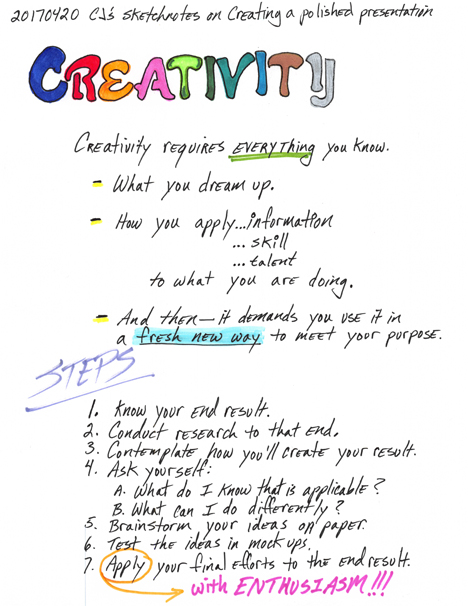 20170420 CJ's sketchnotes on Creating a polished presentation
CREATIVITY
Creativity requires EVERYthing you know.
- What you dream up.
- How you apply...information
... skill
... talent
to what you are doing.
- And then—it demands you use it in
a fresh new way to meet your purpose.
STEPS
1. Know your end result.
2. Conduct research to that end.
3. Contemplate how you'll create your result.
4. Ask yourself:
A. What do I know that is applicable?
B. What can I do differently?
5. Brainstorm your ideas on paper.
6. Test the ideas in mock ups.
7. Apply your final efforts to the end result.
with ENTHUSIASM!!!